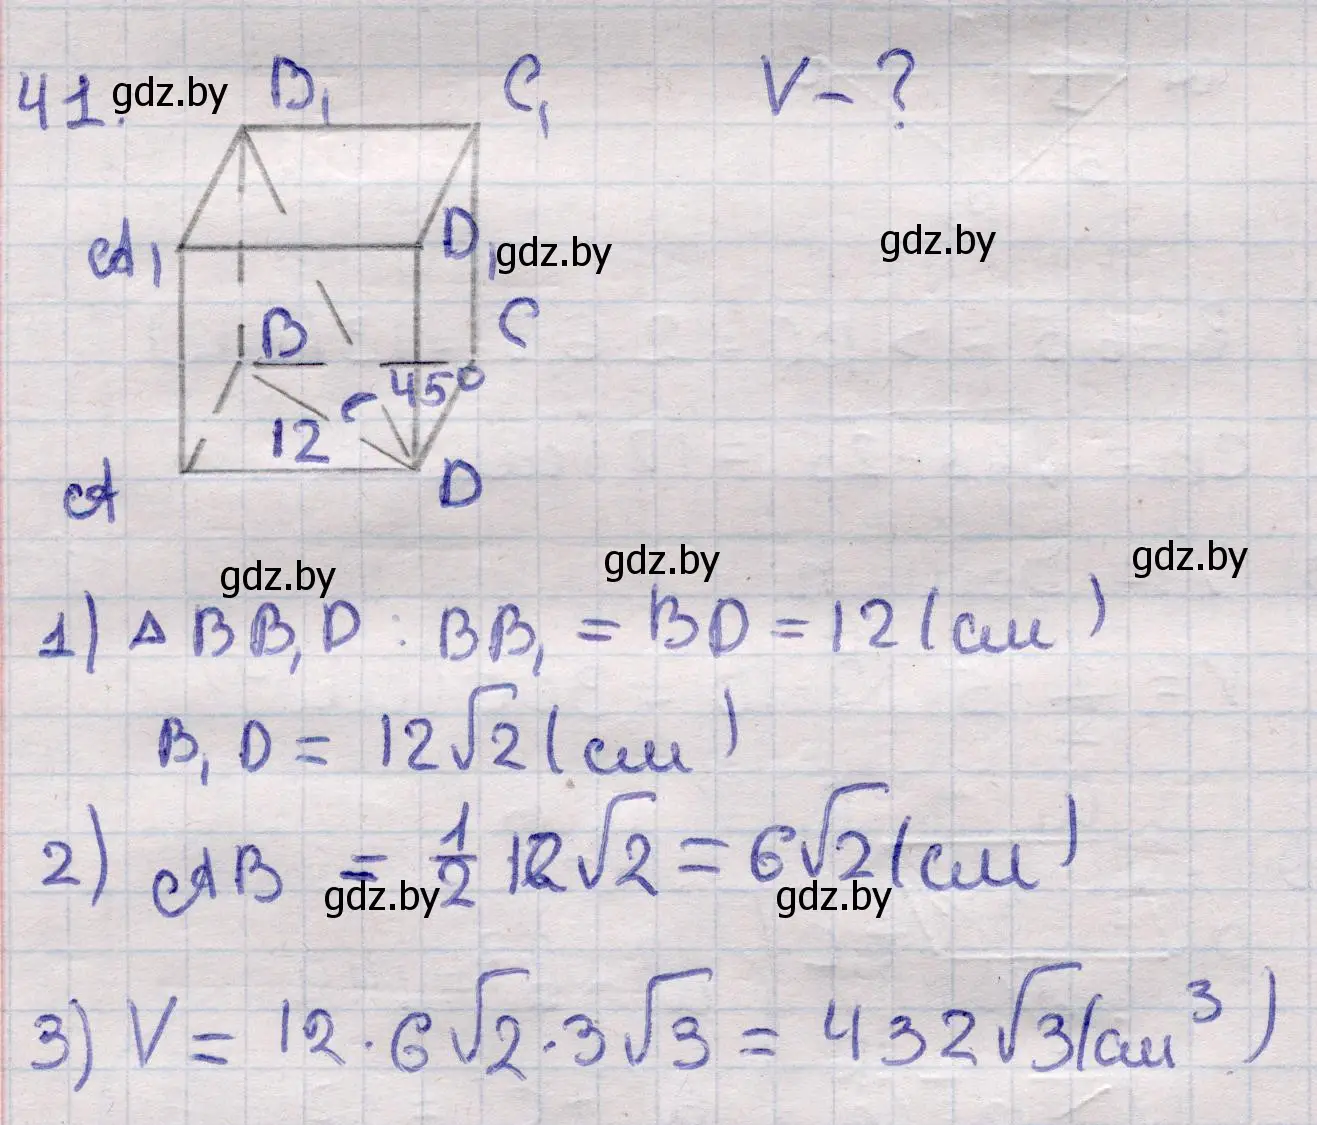 41. gdz.by B₁ C₁ V - ?
A₁ D₁ gdz.by gdz.by
B C
45°
12
A D
gdz.by gdz.by gdz.by
1) △ BB₁D : BB₁ = BD = 12 (см)
B₁D = 12√2 (см)
2) AB = 1/2 12√2 = 6√2 (см)
gdz.by gdz.by
3) V = 12 · 6√2 · 3√3 = 432√3 (см³)